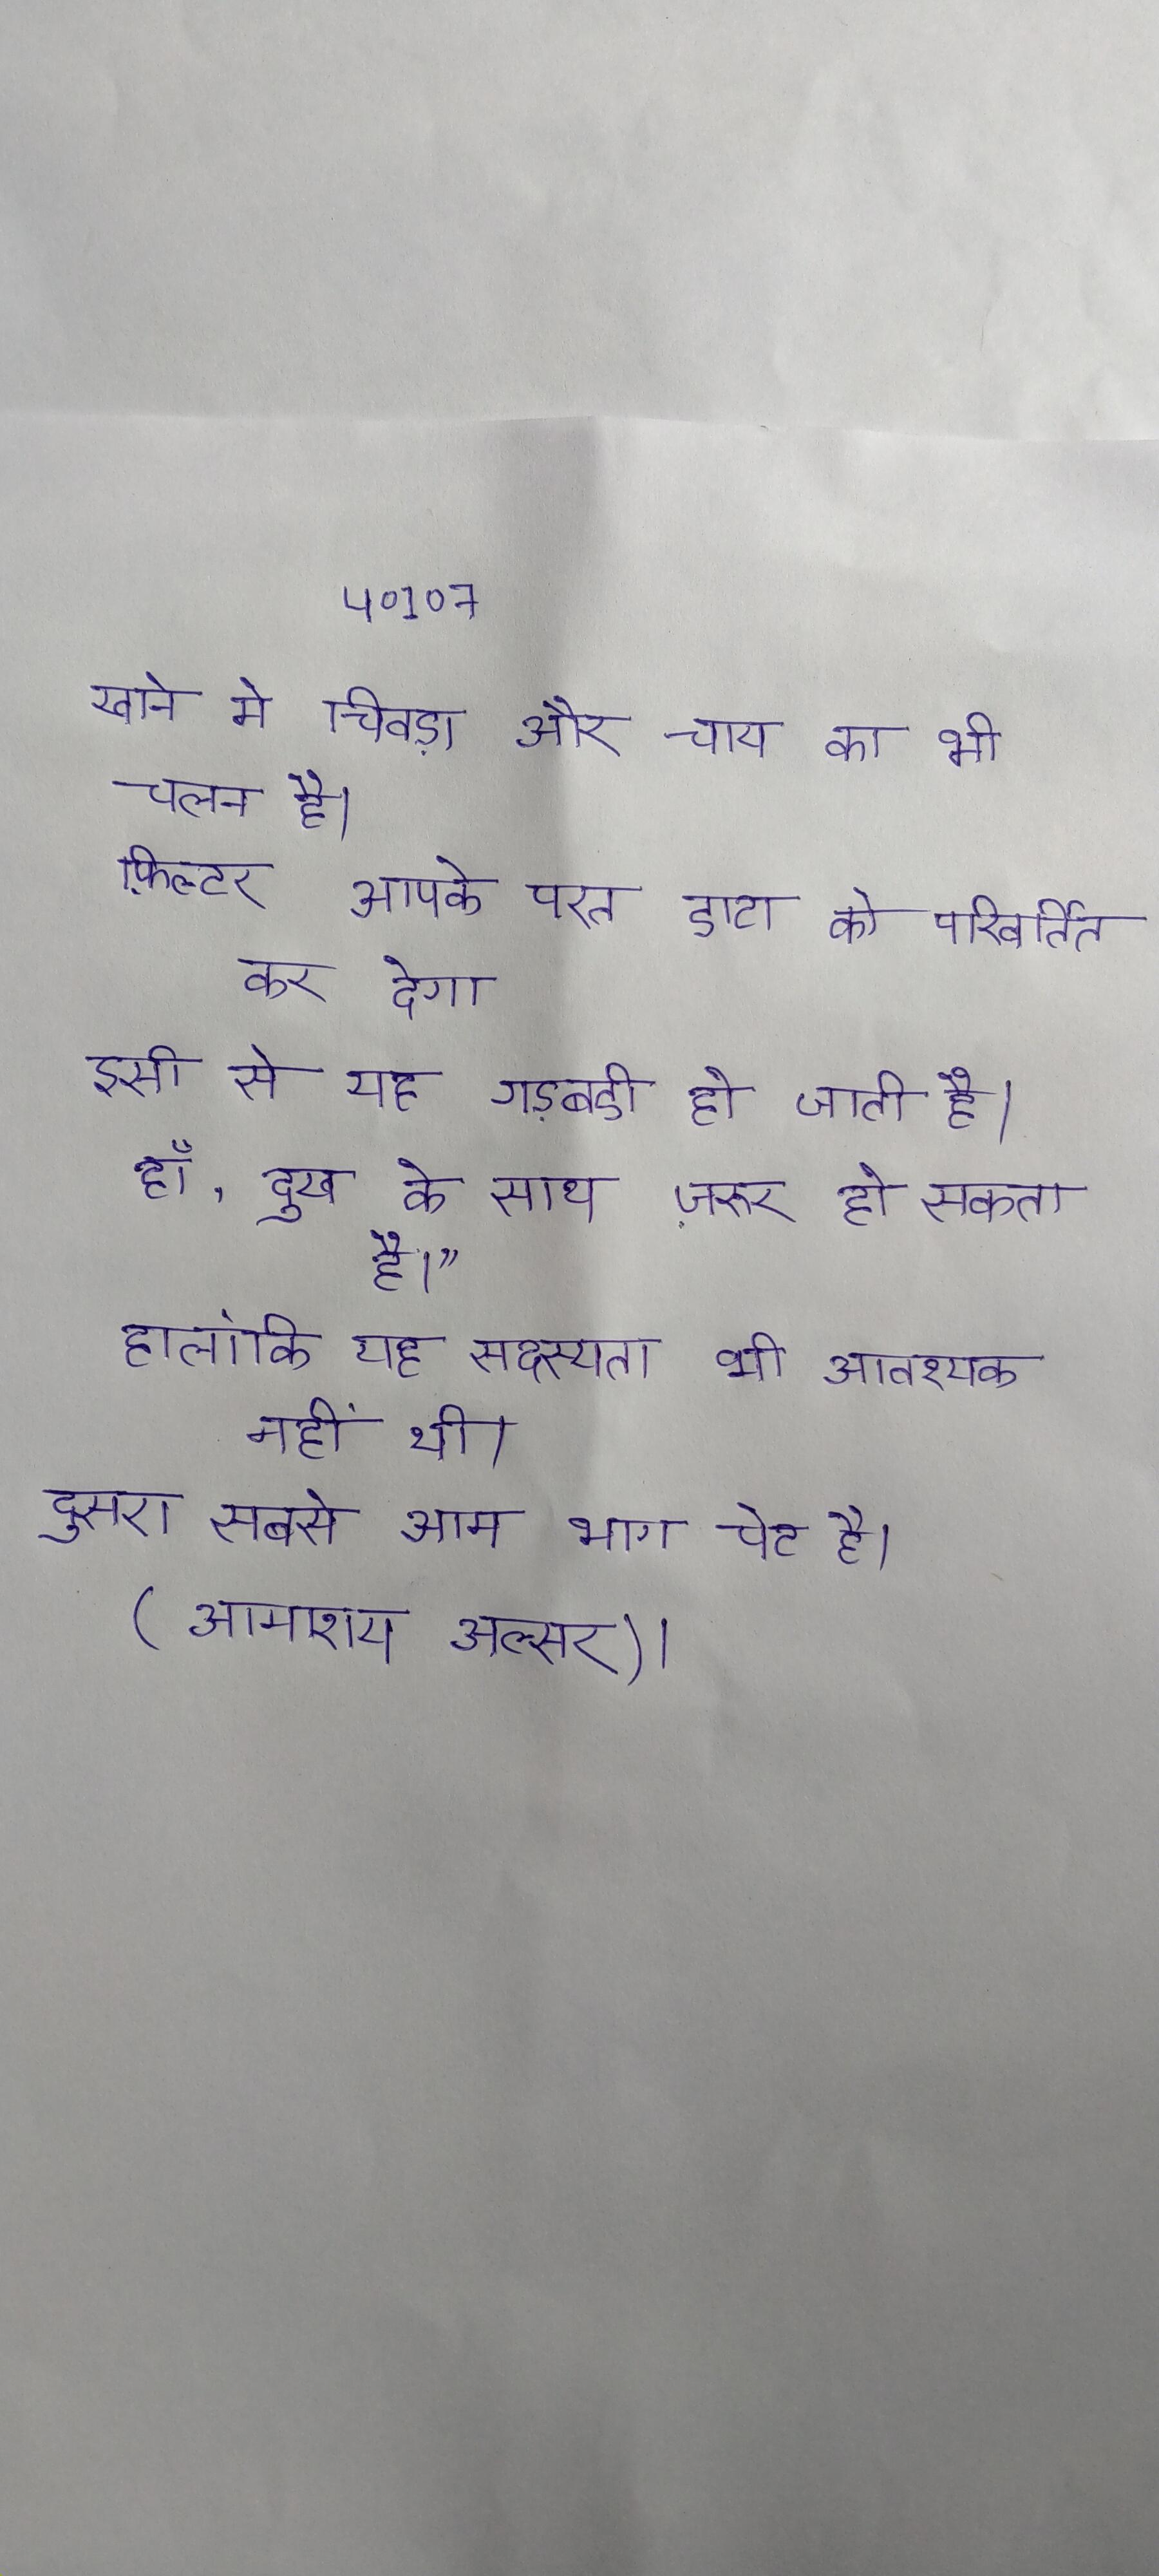 40107
खाने मे चिवड़ा और चाय का भी
चलन है।
फ़िल्टर आपके परत डाटा को परिवर्तित
कर देगा
इसी से यह गड़बडी हो जाती है।
हाँ, दुख के साथ ज़रूर हो सकता
है।”
हालांकि यह सदस्यता भी आवश्यक
नहीं थी।
दुसरा सबसे आम भाग पेट है।
(आमाशय अल्सर)।